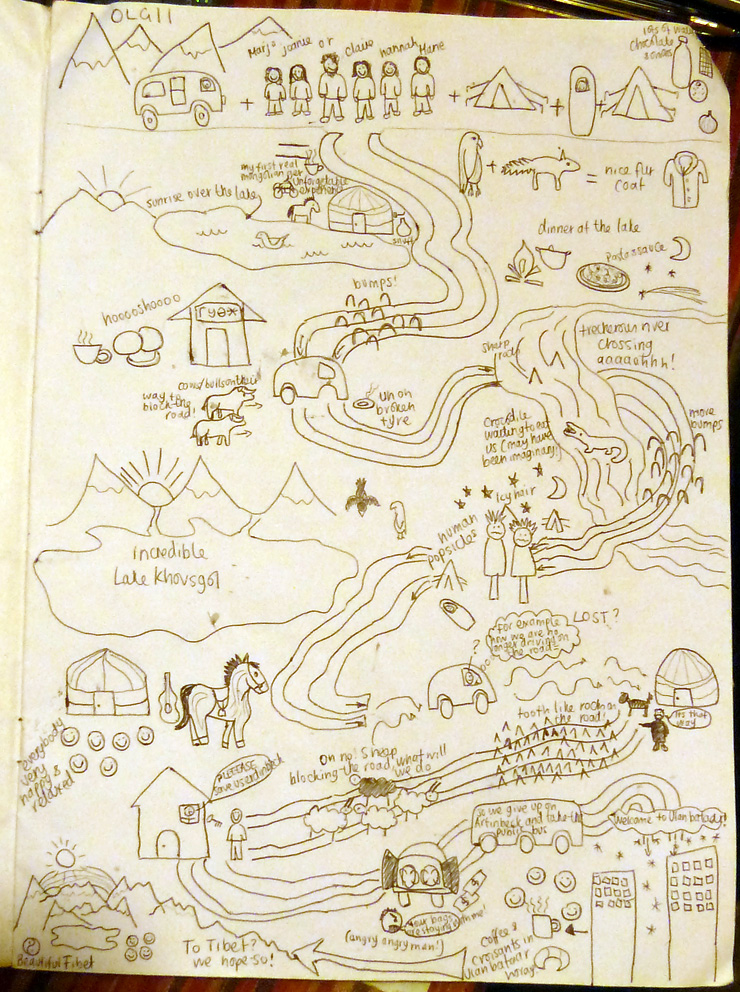 OLGII
Marje Joanie or Claire hannah Marie
lots of water
Chocolate
& onions
my first real
mongolian ger
unforgetable
experience
snuff
sunrise over the lake
+ + + +
+ = nice fur
coat
dinner at the lake
Pasta & sauce
bumps!
hooooshoooo
ГУАНЗ
cows/bulls on their
way to
block the
road!
uh oh
broken
tyre
sharp
rocks
trecherous river
crossing
aaaaahhh!
Crocodile
waiting to eat
us (may have
been imaginary)
more
bumps
icy hair
human
popsicles
incredible
Lake Khovsgol
LOST?
for example
now we are no
longer driving on
the road=
?
tooth like rocks on
the road!
its that
way
everybody
very
happy &
relaxed
On no! Sheep
blocking the road, what will
we do
PLEEEASE
save us
so we give up on
Artinbeck and take the
public bus
Welcome to Ulan bataar!
$ $
our bags
are staying with me!
(angry angry man!)
Coffee &
Croisants in
Ulan bataar
hooray!
To Tibet?
we hope so!
Beautiful Tibet